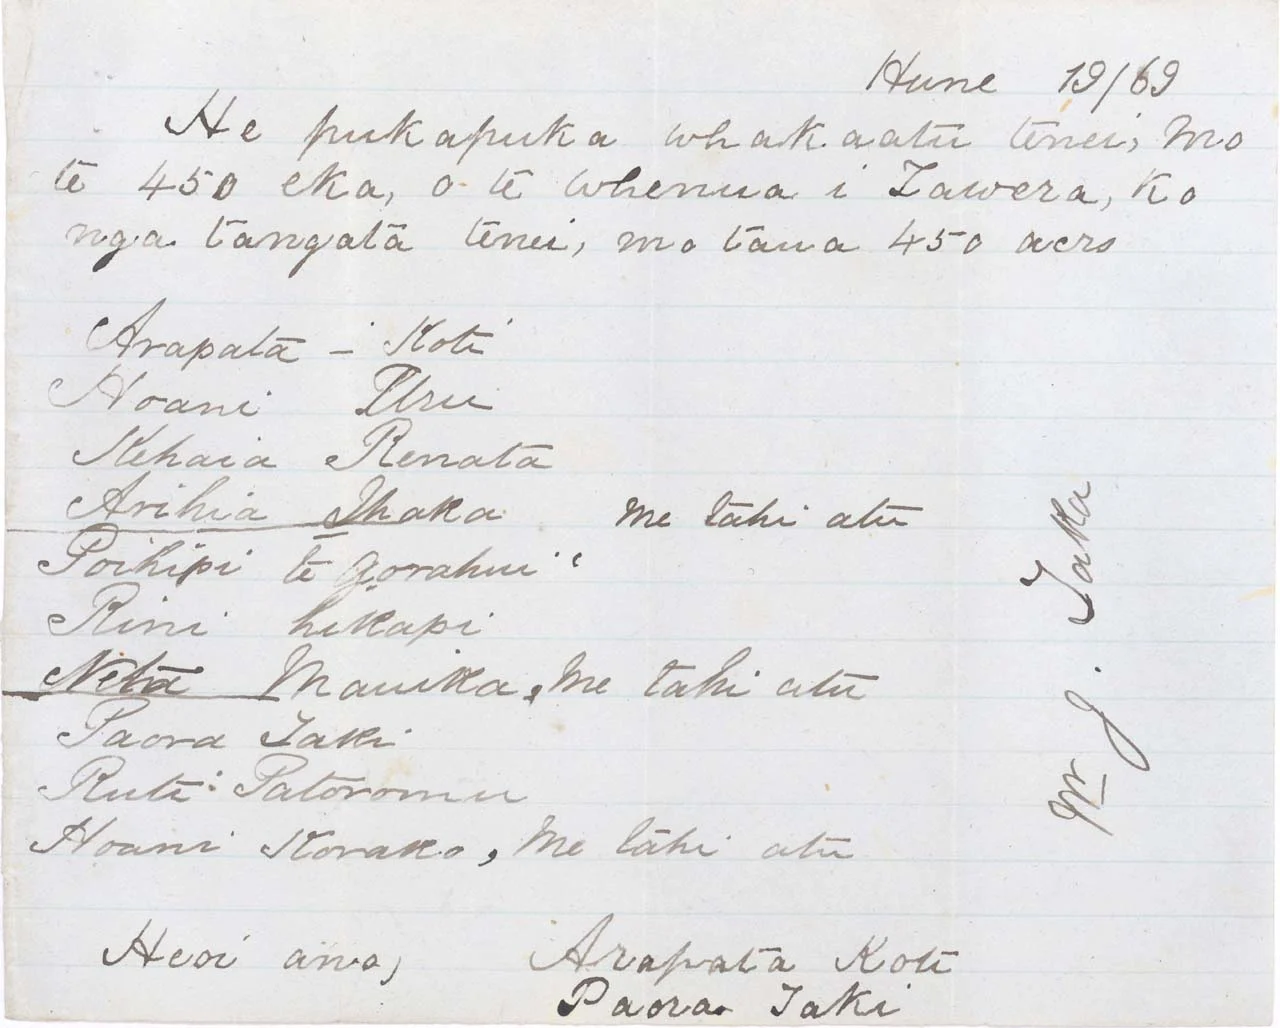 Hune 19/69
He pukapuka whakaatu tenei, mo
te 450 eka, o te whenua i Tawera, ko
nga tangata tenei, mo taua 450 acrs
Arapata - Koti
Hoani Uru
Kehaia Renata
Arihia Ihaka me tahi atu
Poihipi te
Rini hikapi
Neta Mauika, me tahi atu
Paora Taki
Ruti Patoromu
Hoani Korako, me tahi atu
Heoi ano, Arapata Koti
Paora Taki
Mr J. Taka